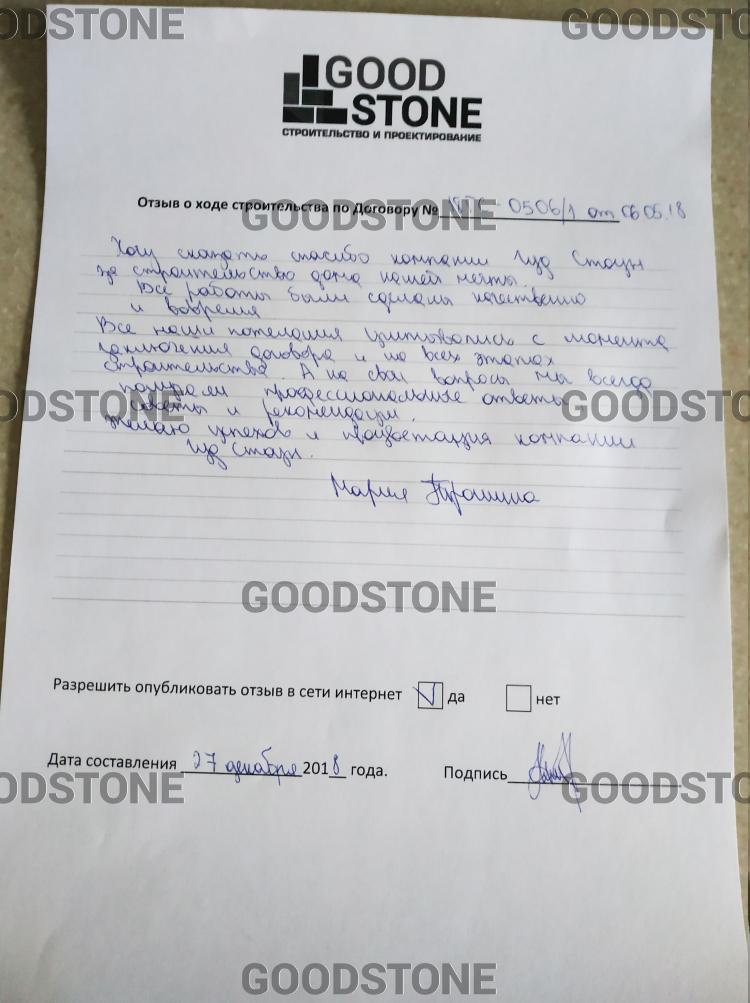 GOODSTONE
GOODSTONE
GOOD
STONE
СТРОИТЕЛЬСТВО И ПРОЕКТИРОВАНИЕ
Отзыв о ходе строительства по Договору № 0506/1 от 06.05.18
GOODSTONE
Хочу сказать спасибо компании Гуд Стоун
за строительство дома нашей мечты.
Все работы были сделаны качественно
и вовремя
Все наши пожелания учитывались с момента
заключения договора и на всех этапах
строительства. А на свои вопросы мы всегда
GOODSTONE
GOODSTONE
получали профессиональные ответы
советы и рекомендации.
Желаю успехов и процветания компании
Гуд Стоун.
Мария
GOODSTONE
Разрешить опубликовать отзыв в сети интернет да нет
Дата составления 27 декабря 2018 года.
Подпись
GOODSTONE
GOODSTONE
GOODSTONE